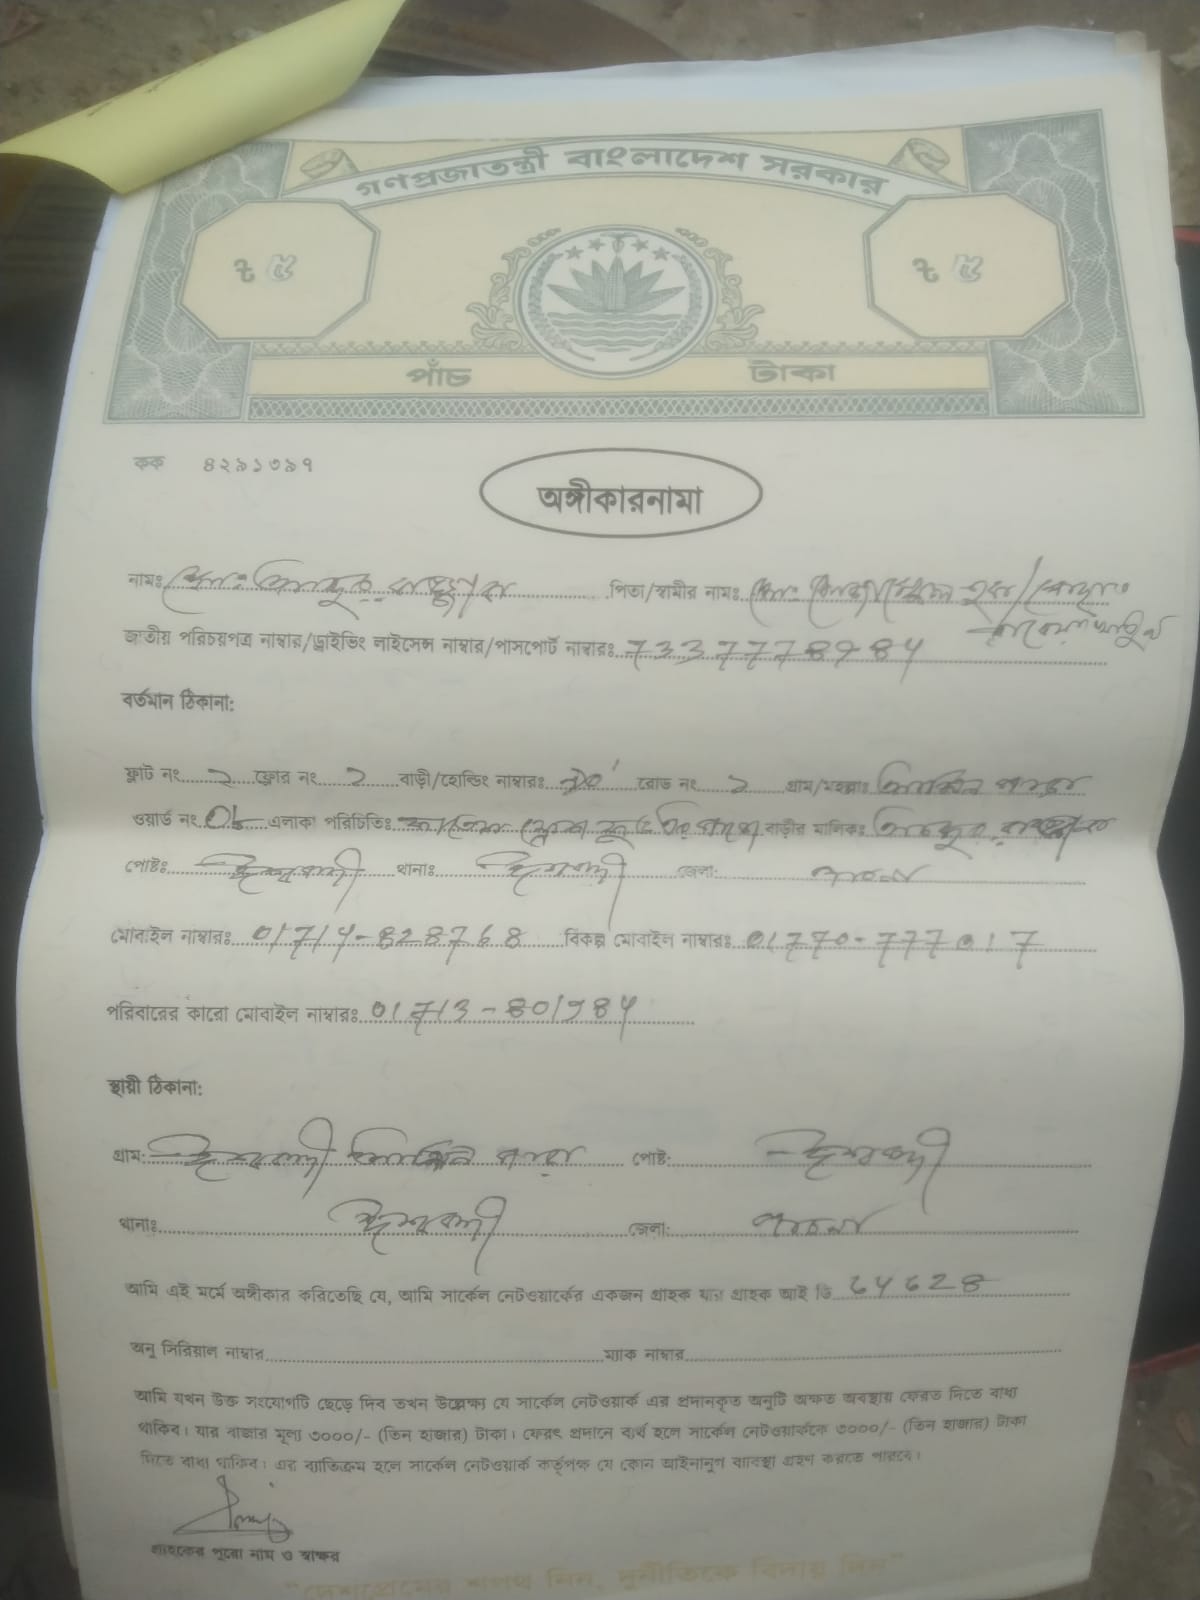 গণপ্রজাতন্ত্রী বাংলাদেশ সরকার
৳ ৫ ৳ ৫
পাঁচ টাকা
কক ৪২৯১৩৯৭
অঙ্গীকারনামা
নামঃ মোঃ পিতা/স্বামীর নামঃ মোঃ
জাতীয় পরিচয়পত্র নাম্বার/ড্রাইভিং লাইসেন্স নাম্বার/পাসপোর্ট নাম্বারঃ
বর্তমান ঠিকানা:
ফ্লাট নং ২ ফ্লোর নং ২ বাড়ী/হোল্ডিং নাম্বারঃ রোড নং ১ গ্রাম/মহল্লাঃ
ওয়ার্ড নং এলাকা পরিচিতিঃ বাড়ীর মালিকঃ
পোষ্টঃ ঈশ্বরদী থানাঃ ঈশ্বরদী জেলা: পাবনা
মোবাইল নাম্বারঃ 01714-828768 বিকল্প মোবাইল নাম্বারঃ 01770-777017
পরিবারের কারো মোবাইল নাম্বারঃ
স্থায়ী ঠিকানা:
গ্রাম: ঈশ্বরদী পোষ্ট: ঈশ্বরদী
থানাঃ ঈশ্বরদী জেলা: পাবনা
আমি এই মর্মে অঙ্গীকার করিতেছি যে, আমি সার্কেল নেটওয়ার্কের একজন গ্রাহক যার গ্রাহক আই ডি
অনু সিরিয়াল নাম্বার ম্যাক নাম্বার
আমি যখন উক্ত সংযোগটি ছেড়ে দিব তখন উল্লেক্ষ্য যে সার্কেল নেটওয়ার্ক এর প্রদানকৃত অনুটি অক্ষত অবস্থায় ফেরত দিতে বাধ্য
থাকিব। যার বাজার মূল্য ৩০০০/- (তিন হাজার) টাকা। ফেরৎ প্রদানে ব্যর্থ হলে সার্কেল নেটওয়ার্ককে ৩০০০/- (তিন হাজার) টাকা
দিতে বাধ্য থাকিব। এর ব্যতিক্রম হলে সার্কেল নেটওয়ার্ক কর্তৃপক্ষ যে কোন আইনানুগ ব্যাবস্থা গ্রহণ করতে পারবে।
গ্রাহকের পুরো নাম ও স্বাক্ষর
"দেশপ্রেমের শপথ নিন, দুর্নীতিকে বিদায় দিন"